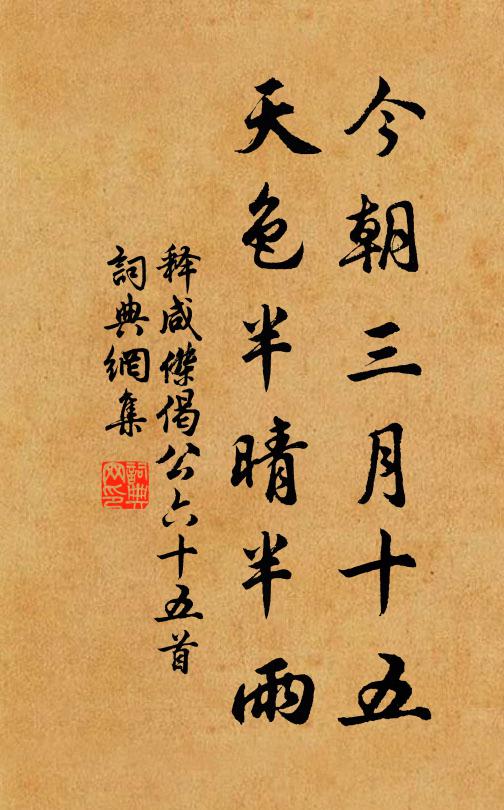 今朝三月十五
天色半晴半雨
释咸傑偈公六十五首
詞典網集
詞典网印